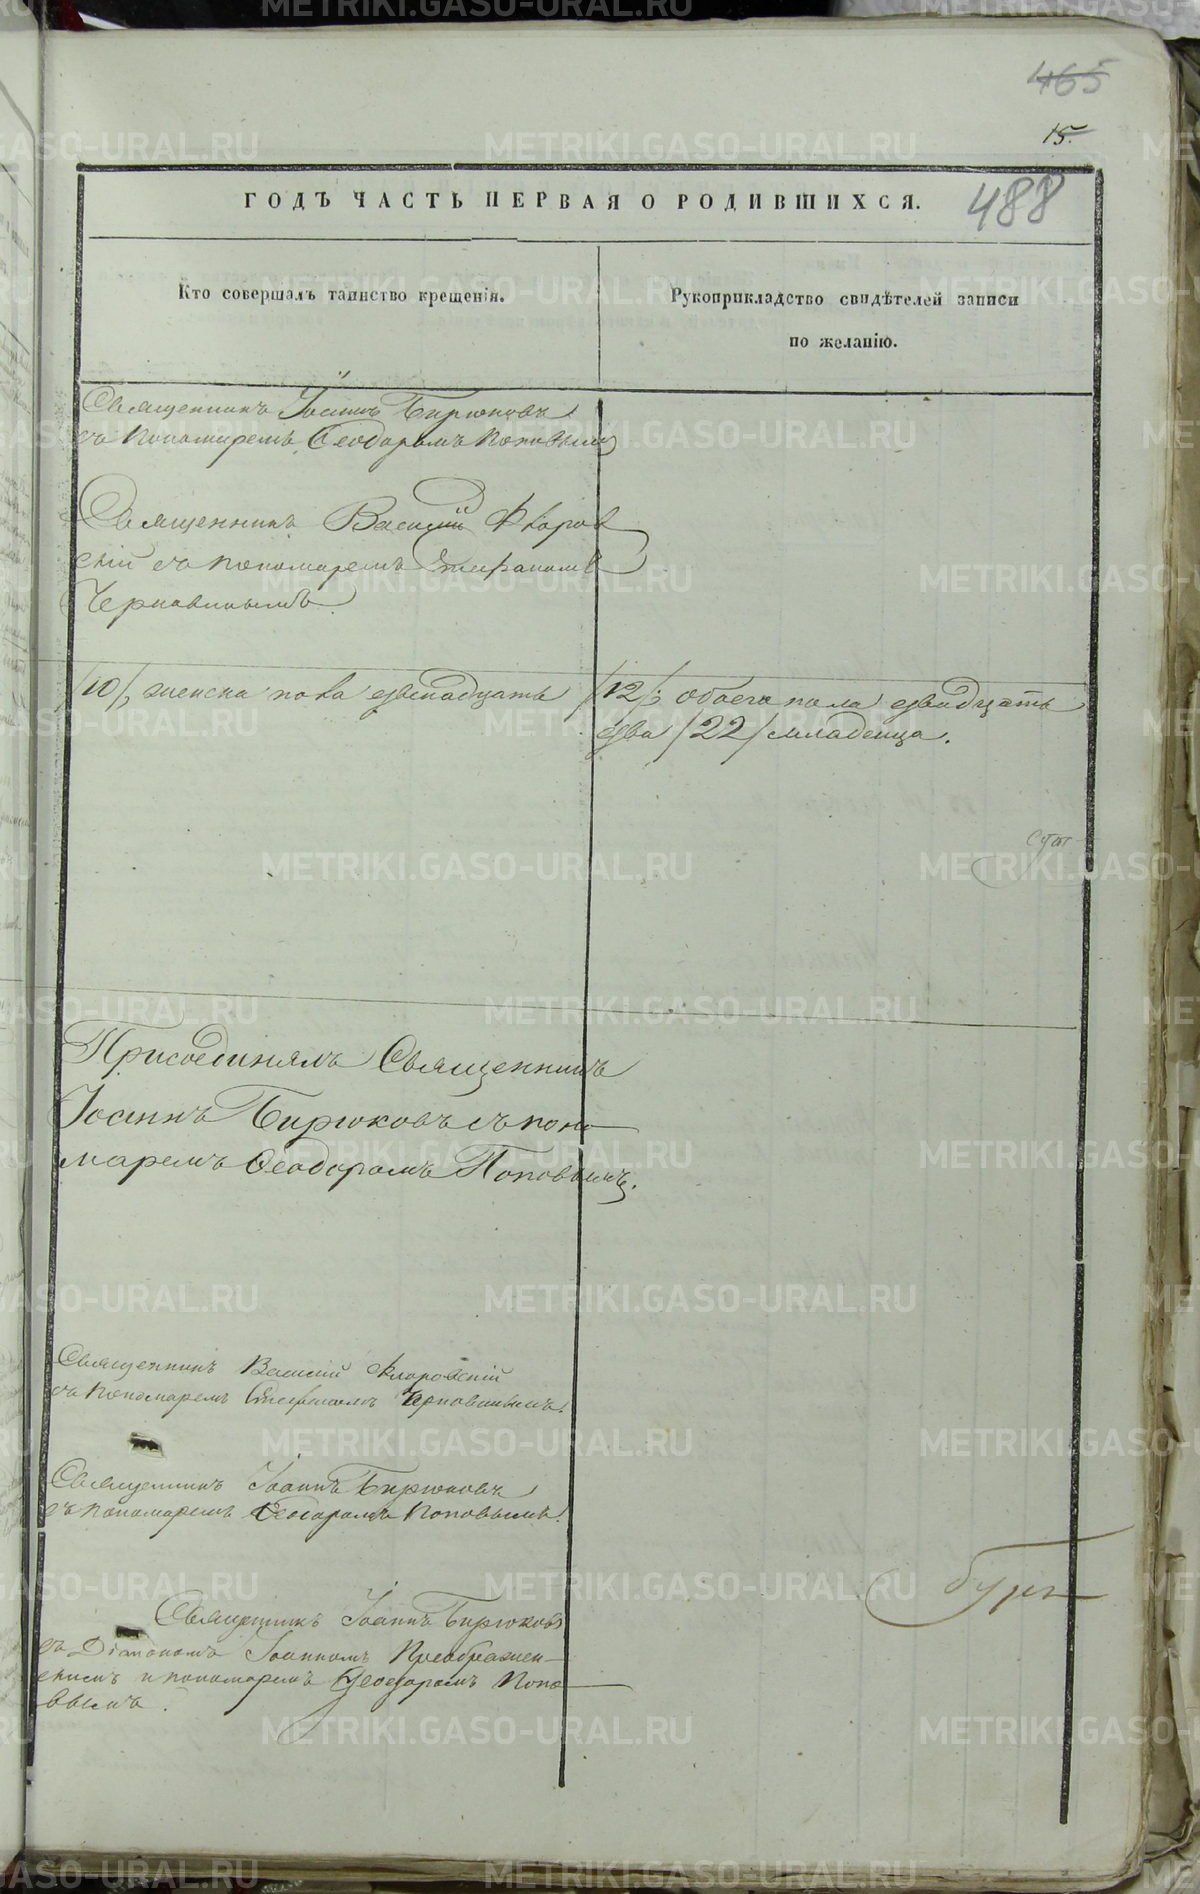 465
15.
ГОДЪ ЧАСТЬ ПЕРВАЯ О РОДИВШИХСЯ.
488
Кто совершалъ таинство крещенія.
Рукоприкладство свидѣтелей записи
по желанію.
Священникъ Іоаннъ Бирюковъ
съ пономаремъ Ѳеодоромъ Поповымъ
Священникъ Василій Флоров
скій съ пономаремъ Стефаномъ
Черновинымъ.
/10/, женска пола двенадцать /12/; обоего пола двадцать
два /22/ младенца.
Присоединялъ Священникъ
Іоаннъ Бирюковъ съ поно
маремъ Ѳеодоромъ Поповымъ.
Священникъ Василій Флоровскій
съ пономаремъ Стефаномъ Черновинымъ.
Священникъ Іоаннъ Бирюковъ
съ пономаремъ Ѳеодоромъ Поповымъ.
Священникъ Іоаннъ Бирюковъ
съ Діакономъ Іоанномъ Преображен-
скимъ и пономаремъ Ѳеодоромъ Попо
вымъ.
METRIKI.GASO-URAL.RU